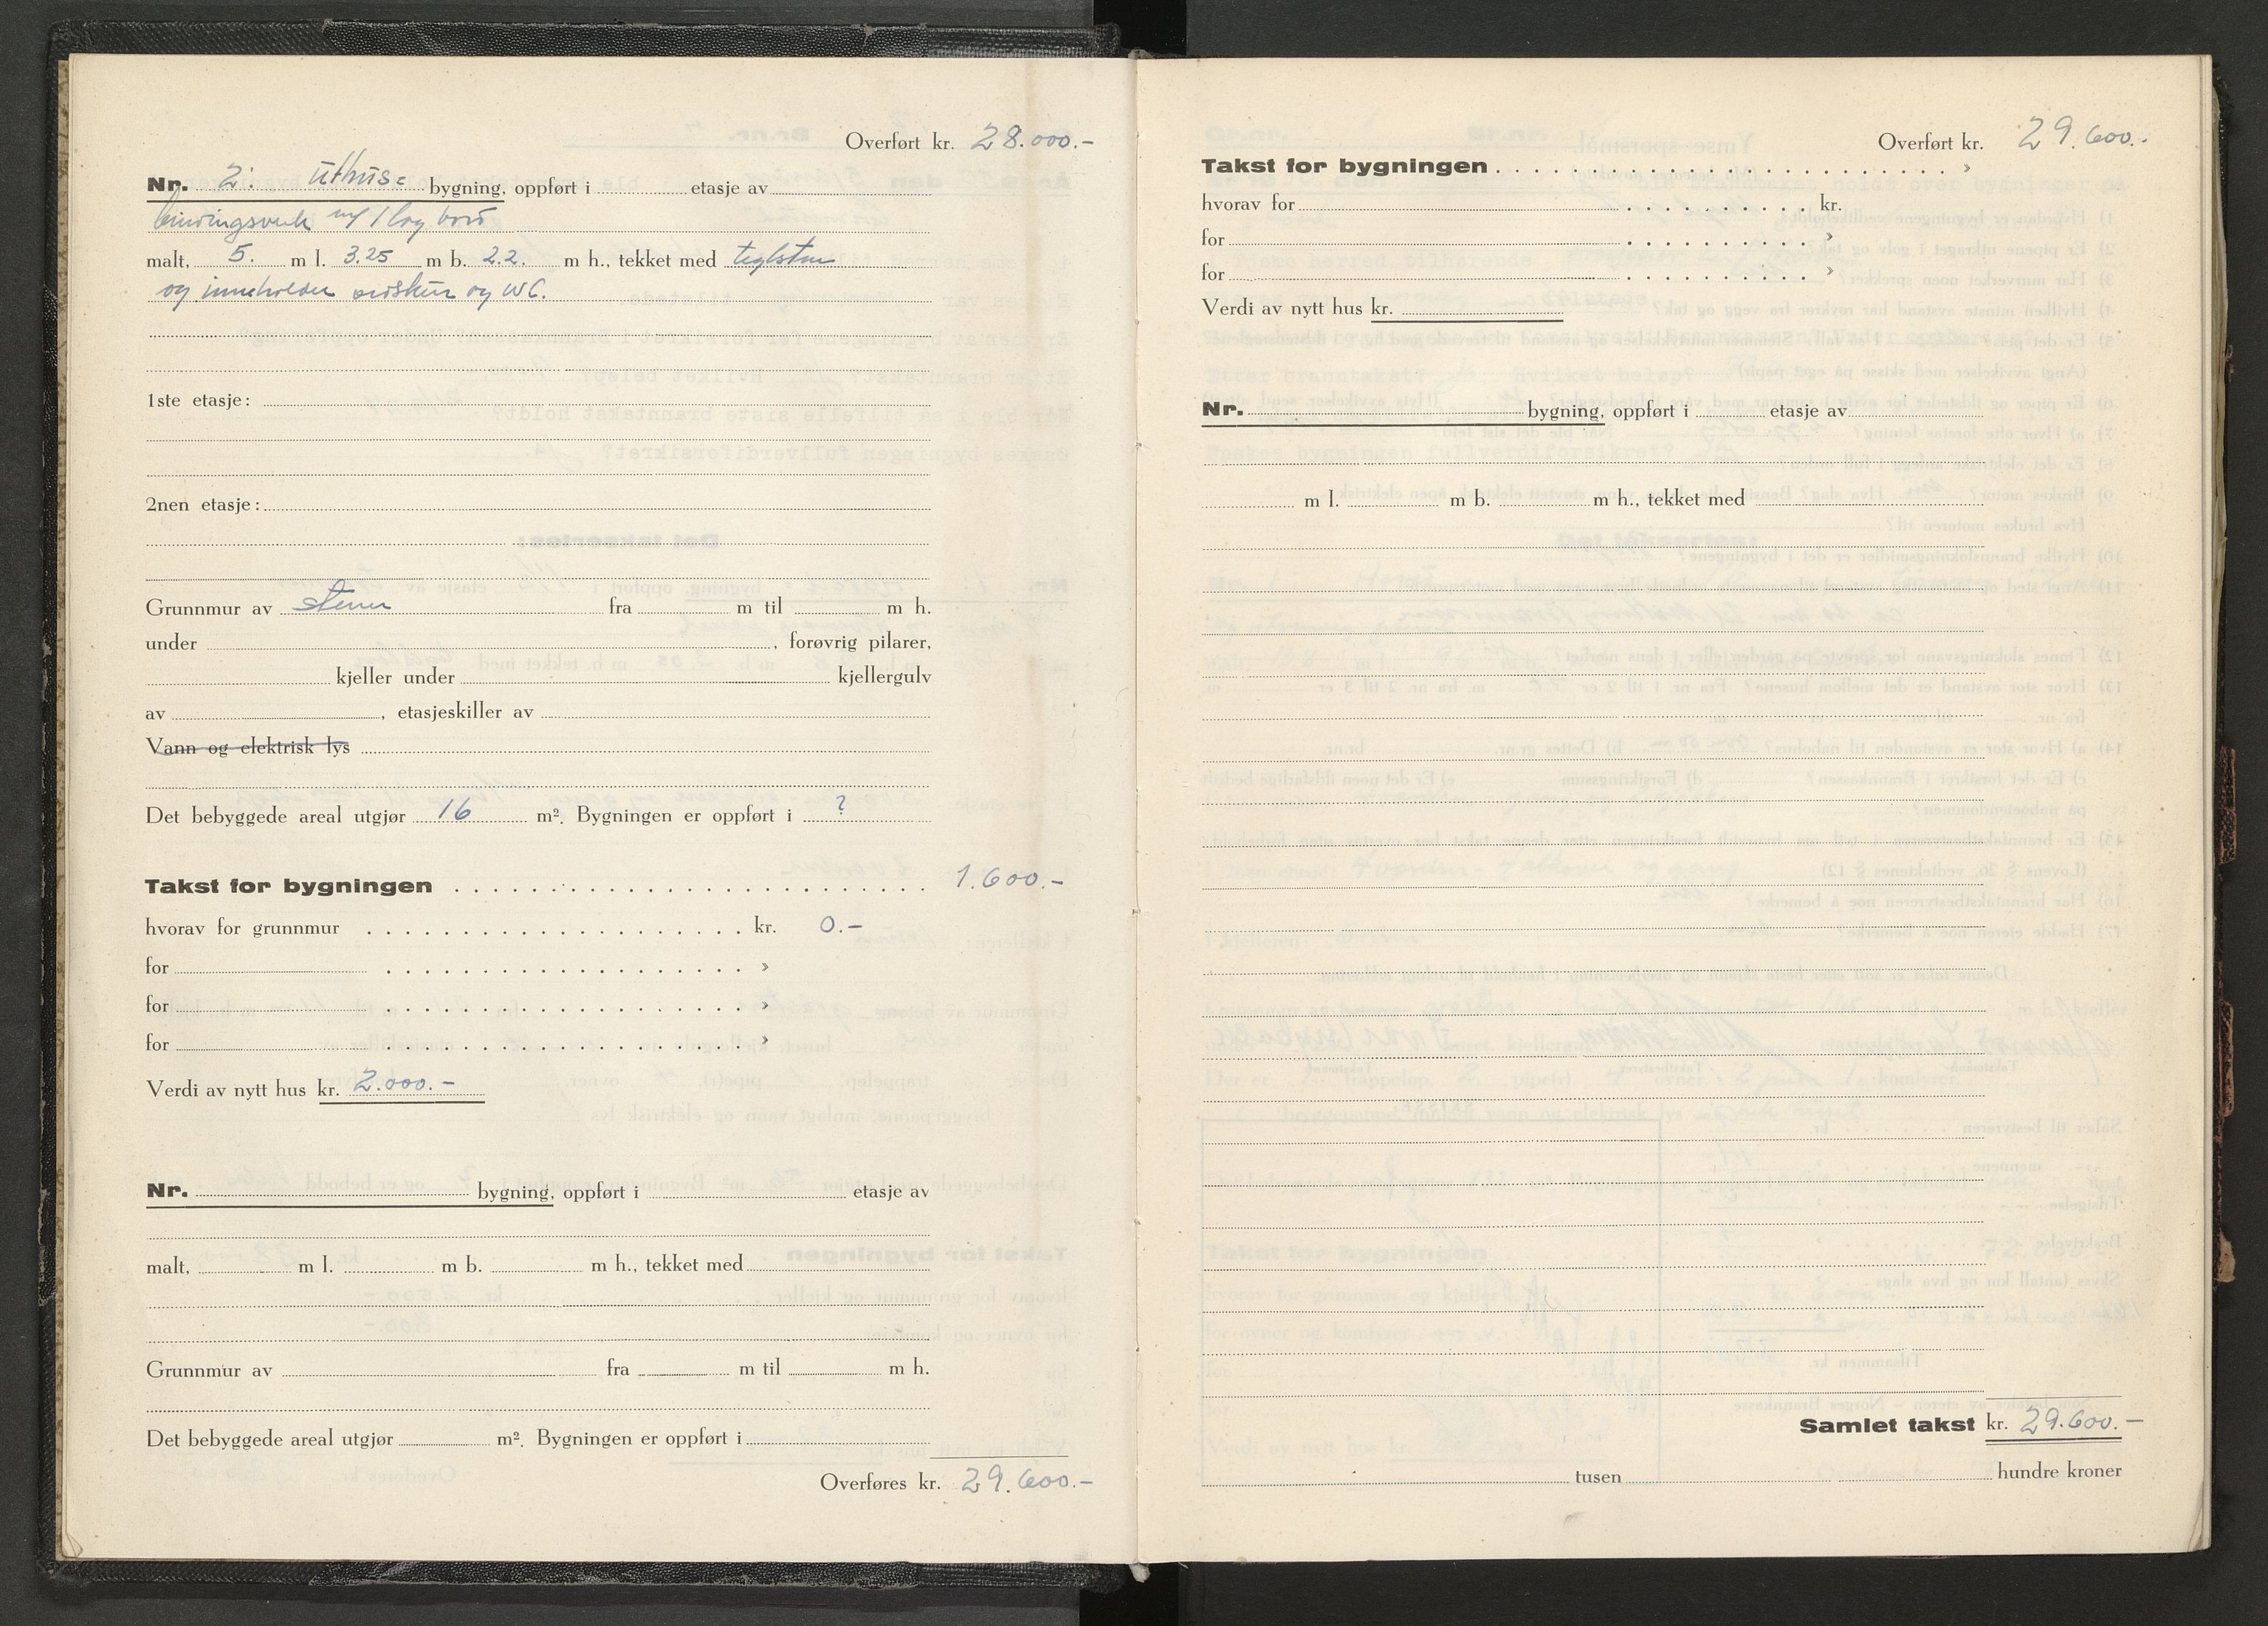 Overført kr. 28.000.-
Nr. 2. Uthus= bygning, oppført i etasje av
bindingsverk m/ 1 lag bord
malt, 5. m l. 3.25 m b. 2.2. m h., tekket med teglsten
og inneholder vedskur og WC.
1ste etasje:
2nen etasje:
Grunnmur av stener fra m til m h.
under , forøvrig pilarer,
kjeller under kjellergulv
av , etasjeskiller av
Vann og elektrisk lys
Det bebyggede areal utgjør 16 m². Bygningen er oppført i ?
Takst for bygningen 1.600.-
hvorav for grunnmur kr. 0.-
for »
for »
for »
Verdi av nytt hus kr. 2.000.-
Nr. bygning, oppført i etasje av
malt, m l. m b. m h., tekket med
Grunnmur av fra m til m h.
Det bebyggede areal utgjør m². Bygningen er oppført i
Overføres kr. 29.600.-
Overført kr. 29.600.-
Takst for bygningen »
hvorav for kr.
for »
for »
Verdi av nytt hus kr.
Nr. bygning, oppført i etasje av
m l. m b. m h., tekket med
Samlet takst kr. 29.600.-
tusen hundre kroner